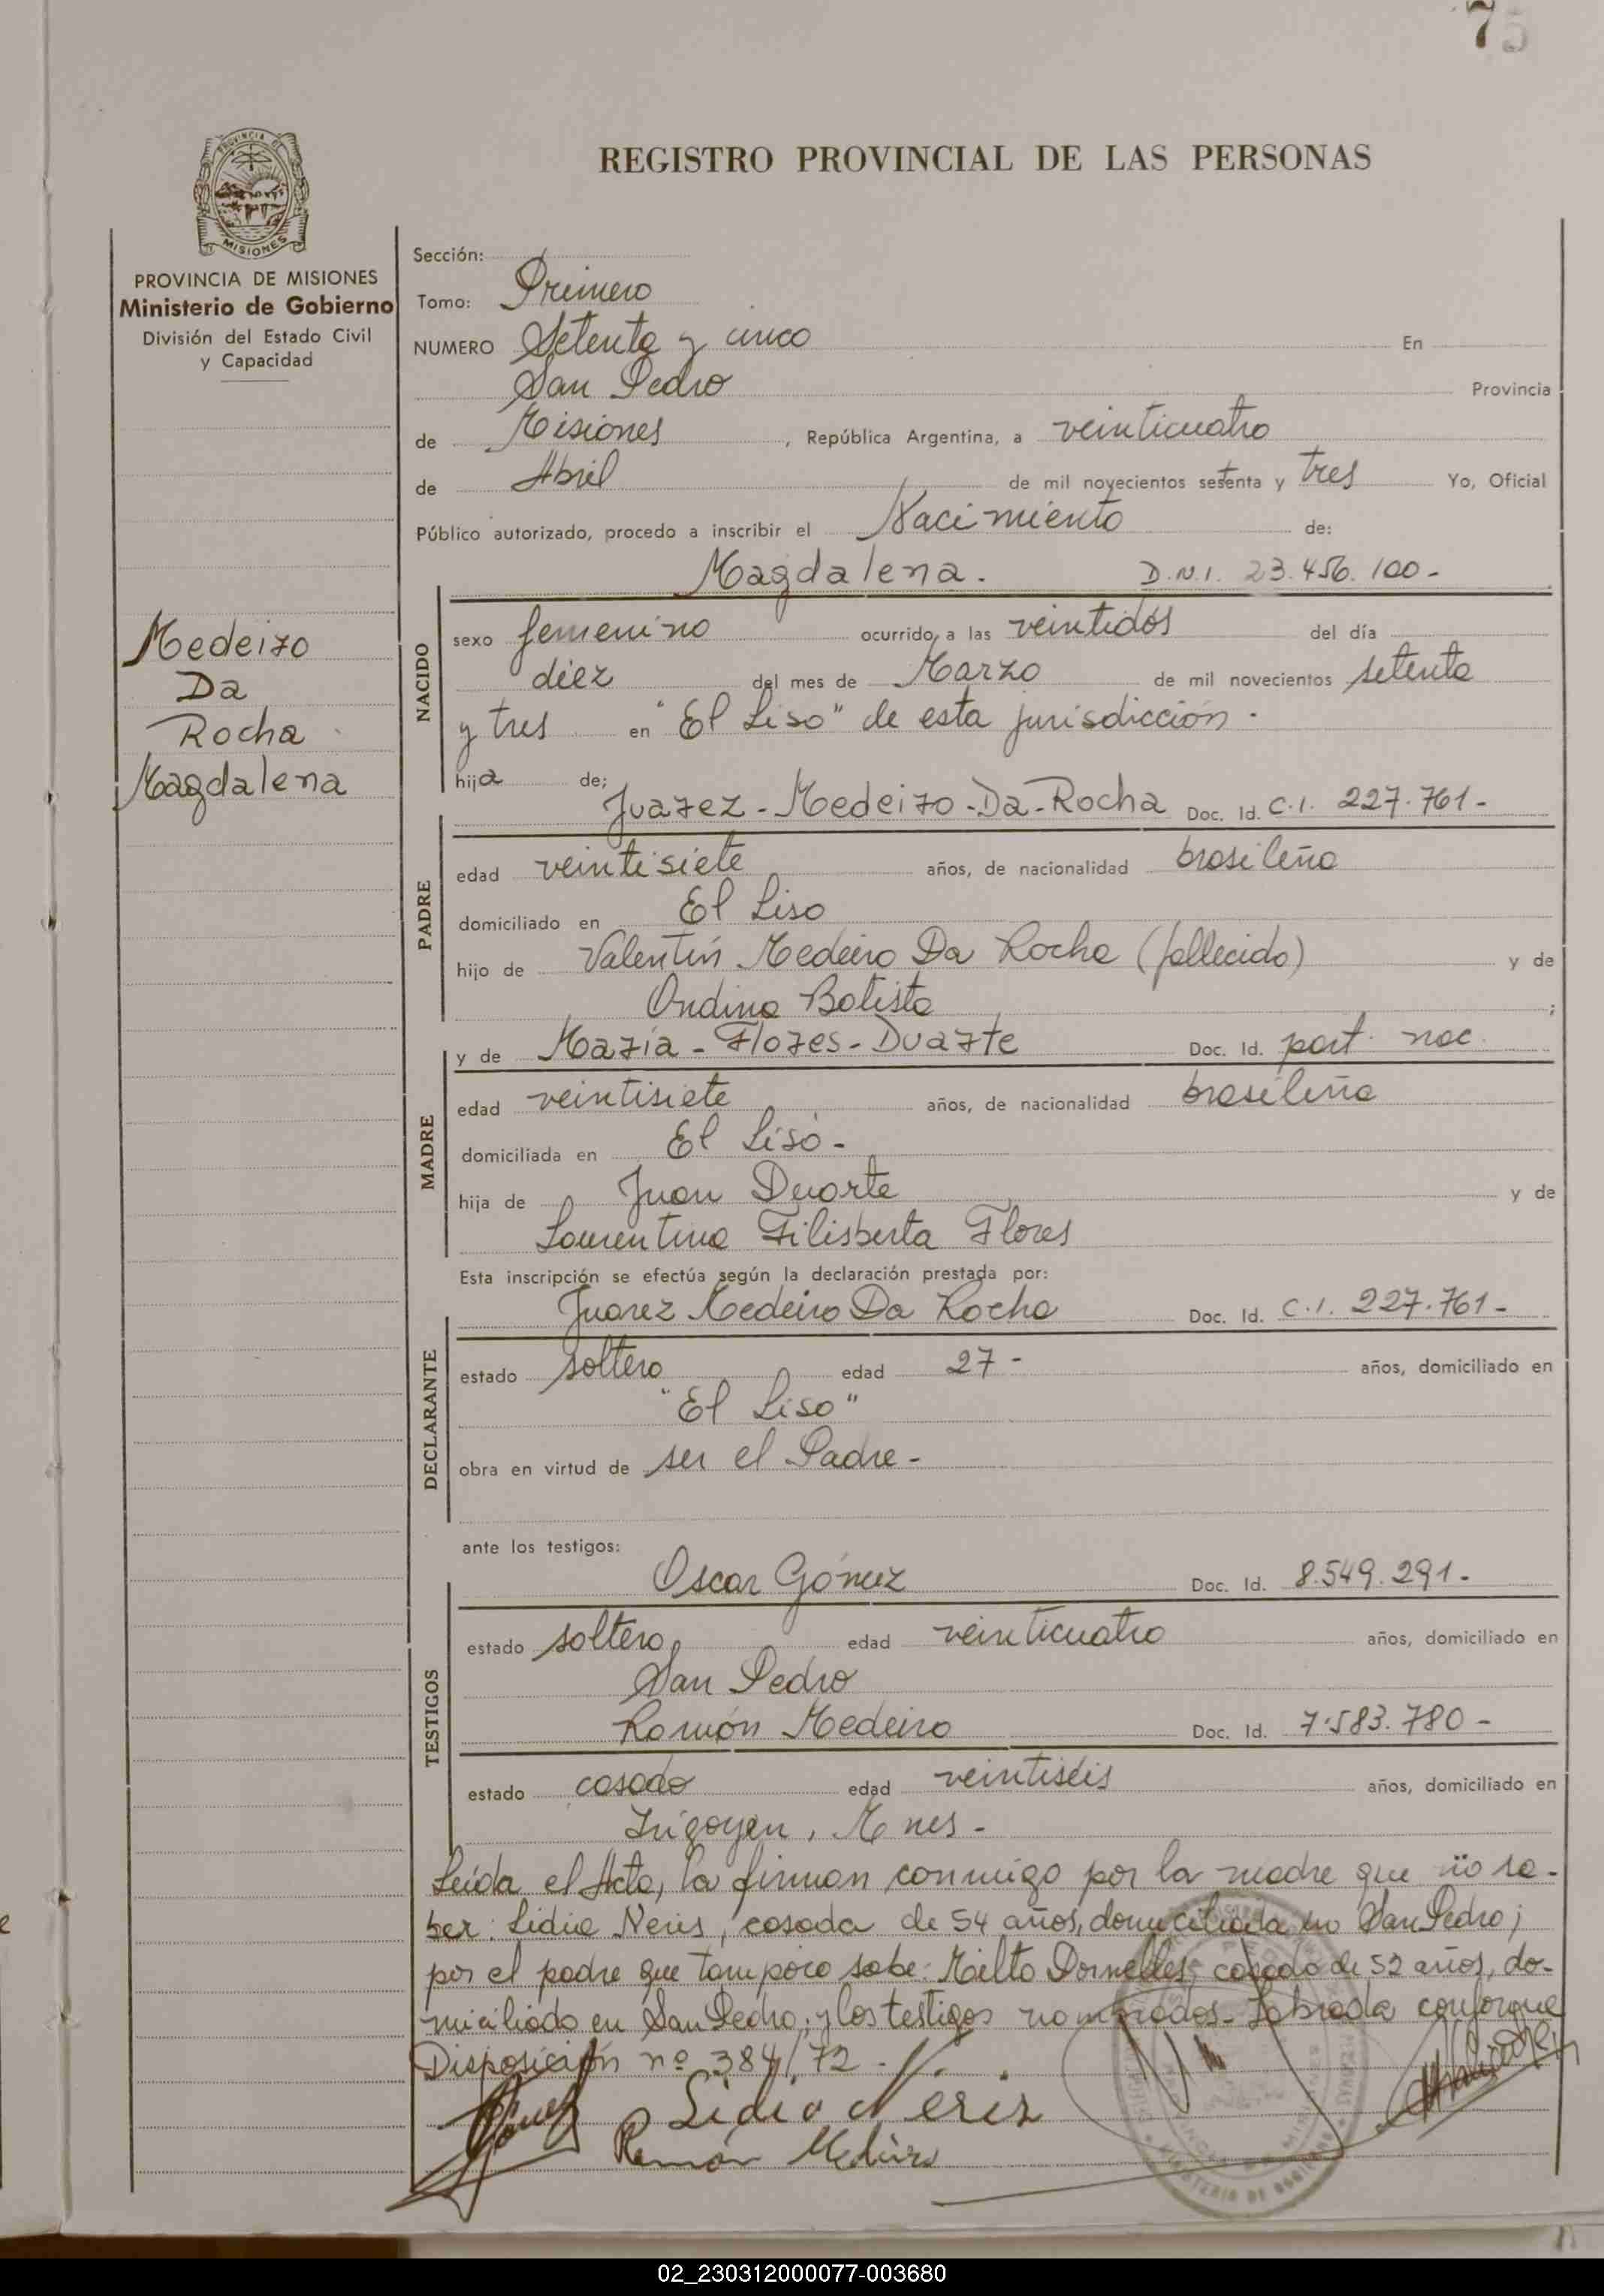 75
REGISTRO PROVINCIAL DE LAS PERSONAS
PROVINCIA DE MISIONES
Ministerio de Gobierno
División del Estado Civil
y Capacidad
Medeiro
Da
Rocha
Magdalena
Sección:
Tomo: Primero
NUMERO Setenta y cinco En
San Pedro Provincia
de Misiones, República Argentina, a veinticuatro
de Abril de mil novecientos setenta y tres Yo, Oficial
Público autorizado, procedo a inscribir el Nacimiento de:
Magdalena. D.N.I. 23.456.100-
NACIDO
sexo femenino ocurrido a las veintidós del día
diez del mes de Marzo de mil novecientos setenta
y tres en "El Liso" de esta jurisdicción.
hija de;
Juarez-Medeiro-Da-Rocha Doc. Id. C.I. 227.761-
PADRE
edad veintisiete años, de nacionalidad brasileña
domiciliado en El Liso
hijo de Valentín Medeiro Da Rocha (fallecido) y de
Ondina Batista ;
y de María-Flores-Duarte Doc. Id. part. nac.
MADRE
edad veintisiete años, de nacionalidad brasileña
domiciliada en El Liso-
hija de Juan Duarte y de
Laurentina Filisberta Flores
Esta inscripción se efectúa según la declaración prestada por:
Juarez Medeiro Da Rocha Doc. Id. C.I. 227.761-
DECLARANTE
estado soltero edad 27- años, domiciliado en
"El Liso"
obra en virtud de ser el Padre-
ante los testigos:
Oscar Gómez Doc. Id. 8.549.291-
TESTIGOS
estado soltero edad veinticuatro años, domiciliado en
San Pedro
Ramón Medeiro Doc. Id. 7.583.780-
estado casado edad veintiséis años, domiciliado en
Irigoyen, Mnes-
Leída el Acta, la firman conmigo por la madre que no sa-
ber: Lidia Neris, casada de 54 años, domiciliada en San Pedro;
por el padre que tampoco sabe: Milto Dornelles, casado de 52 años, do-
miciliado en San Pedro; y los testigos nombrados- Labrada conforme
Disposición nº 384/72-
Gómez Lidia Neris
Ramón
02_230312000077-003680